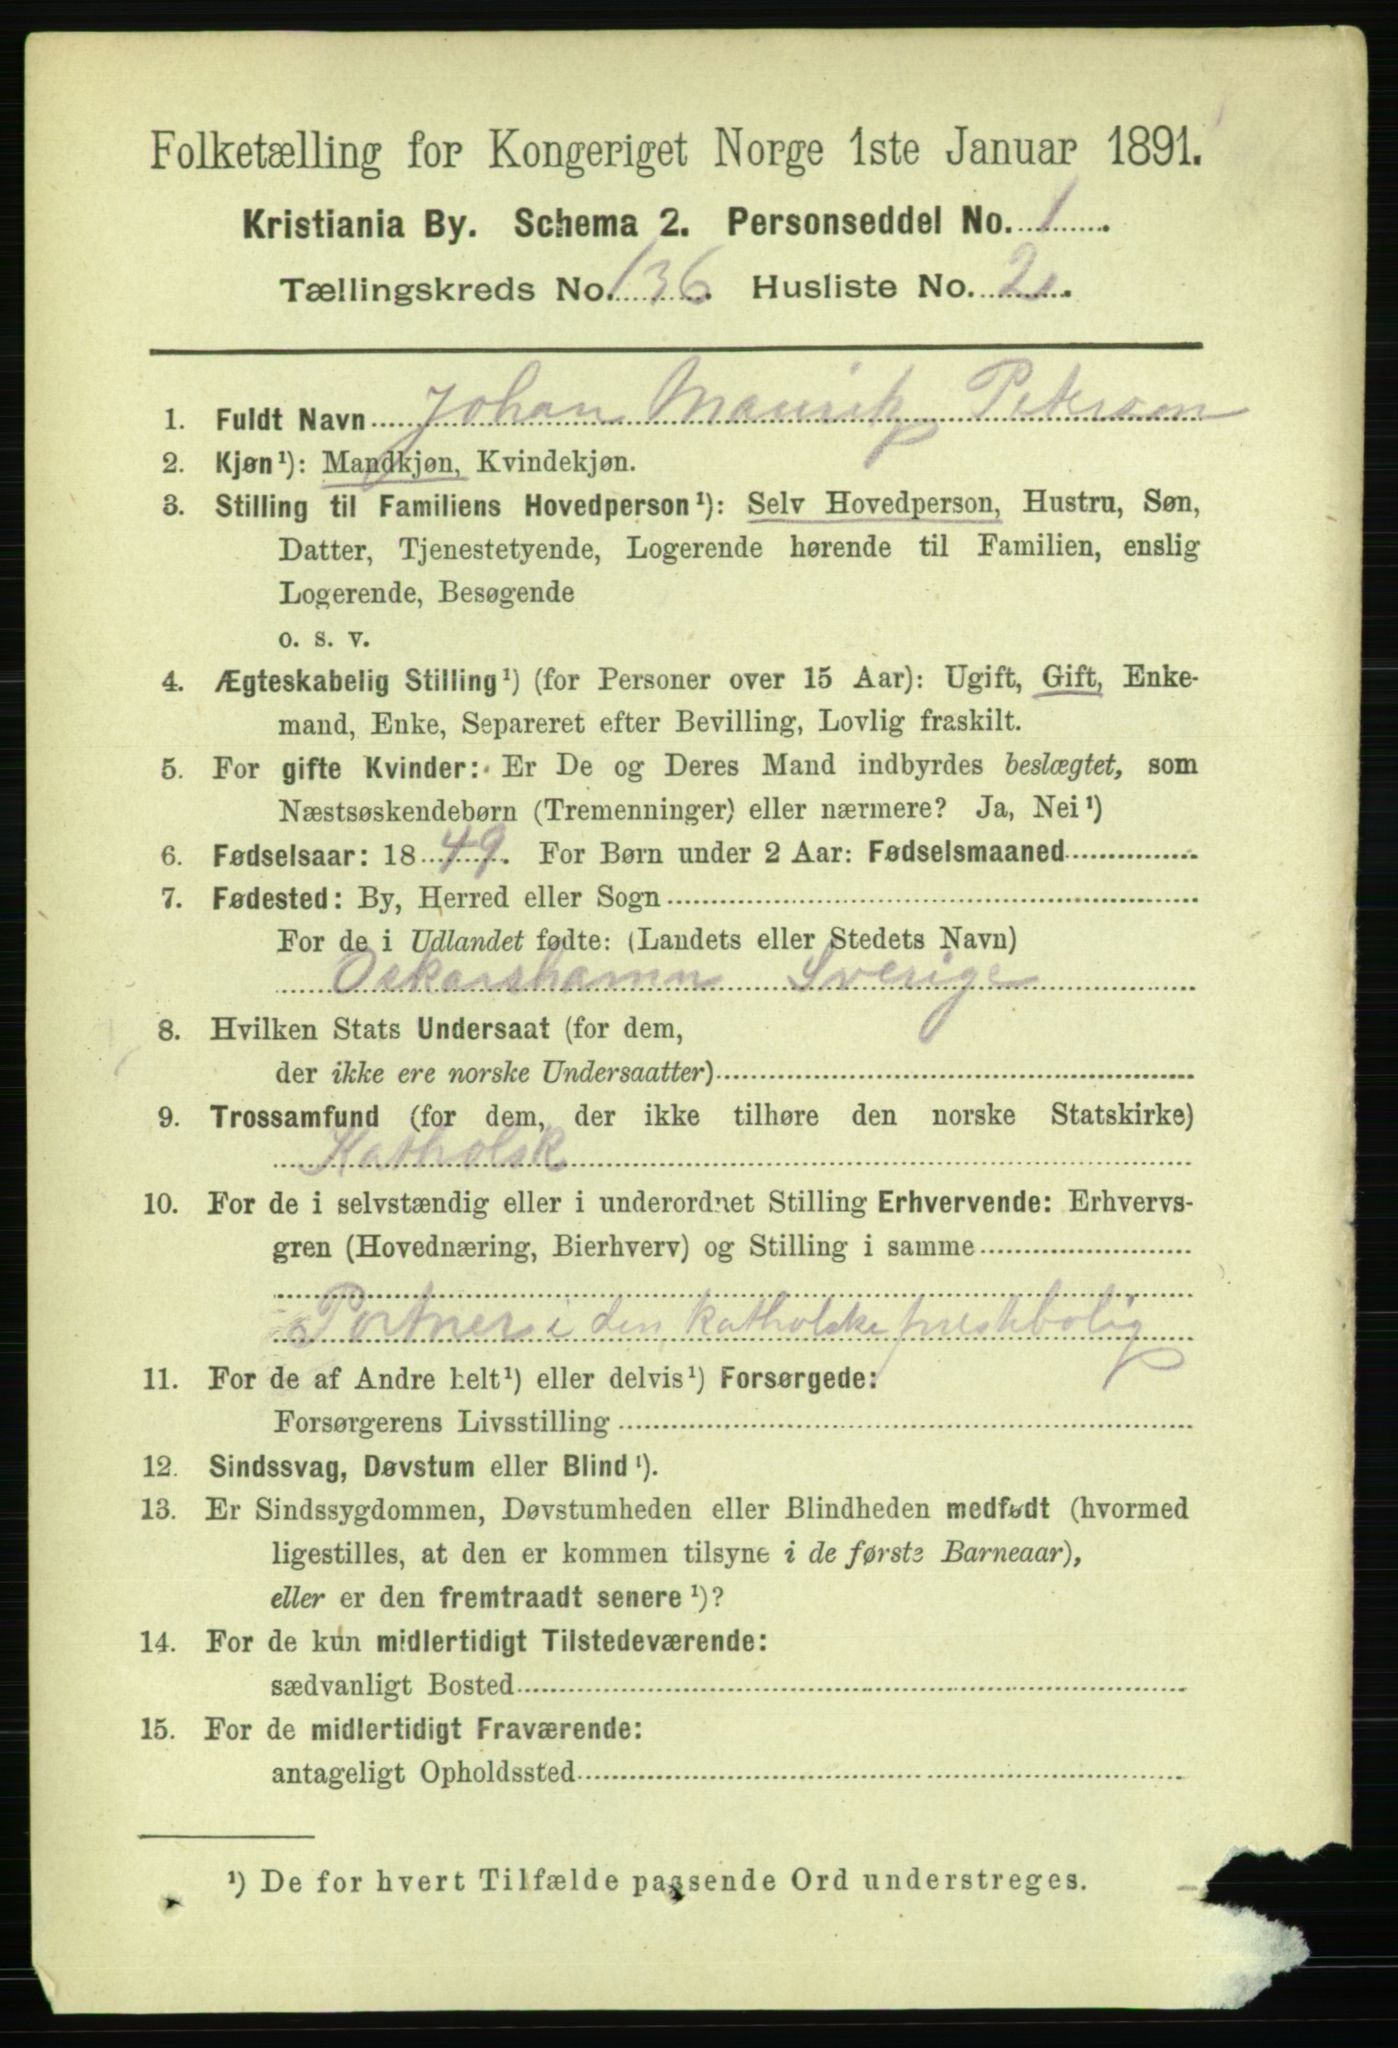 Folketælling for Kongeriget Norge 1ste Januar 1891.
Kristiania By. Schema 2. Personseddel No. 1.
Tællingskreds No. 136. Husliste No. 2.
1. Fuldt Navn Johan Petersom
2. Kjøn¹): Mandkjøn, Kvindekjøn.
3. Stilling til Familiens Hovedperson¹): Selv Hovedperson, Hustru, Søn,
Datter, Tjenestetyende, Logerende hørende til Familien, enslig
Logerende, Besøgende
o. s. v.
4. Ægteskabelig Stilling¹) (for Personer over 15 Aar): Ugift, Gift, Enke-
mand, Enke, Separeret efter Bevilling, Lovlig fraskilt.
5. For gifte Kvinder: Er De og Deres Mand indbyrdes beslægtet, som
Næstsøskendebørn (Tremenninger) eller nærmere? Ja, Nei¹)
6. Fødselsaar: 1849. For Børn under 2 Aar: Fødselsmaaned
7. Fødested: By, Herred eller Sogn
For de i Udlandet fødte: (Landets eller Stedets Navn)
Oskarshamn Sverige
8. Hvilken Stats Undersaat (for dem,
der ikke ere norske Undersaatter)
9. Trossamfund (for dem, der ikke tilhøre den norske Statskirke)
Katholsk
10. For de i selvstændig eller i underordnet Stilling Erhvervende: Erhvervs-
gren (Hovednæring, Bierhverv) og Stilling i samme
Portner i den katholske prestebolig
11. For de af Andre helt¹) eller delvis¹) Forsørgede:
Forsørgerens Livsstilling
12. Sindssvag, Døvstum eller Blind¹).
13. Er Sindssygdommen, Døvstumheden eller Blindheden medfødt (hvormed
ligestilles, at den er kommen tilsyne i de første Barneaar),
eller er den fremtraadt senere¹)?
14. For de kun midlertidigt Tilstedeværende:
sædvanligt Bosted
15. For de midlertidigt Fraværende:
antageligt Opholdssted
¹) De for hvert Tilfælde passende Ord understreges.